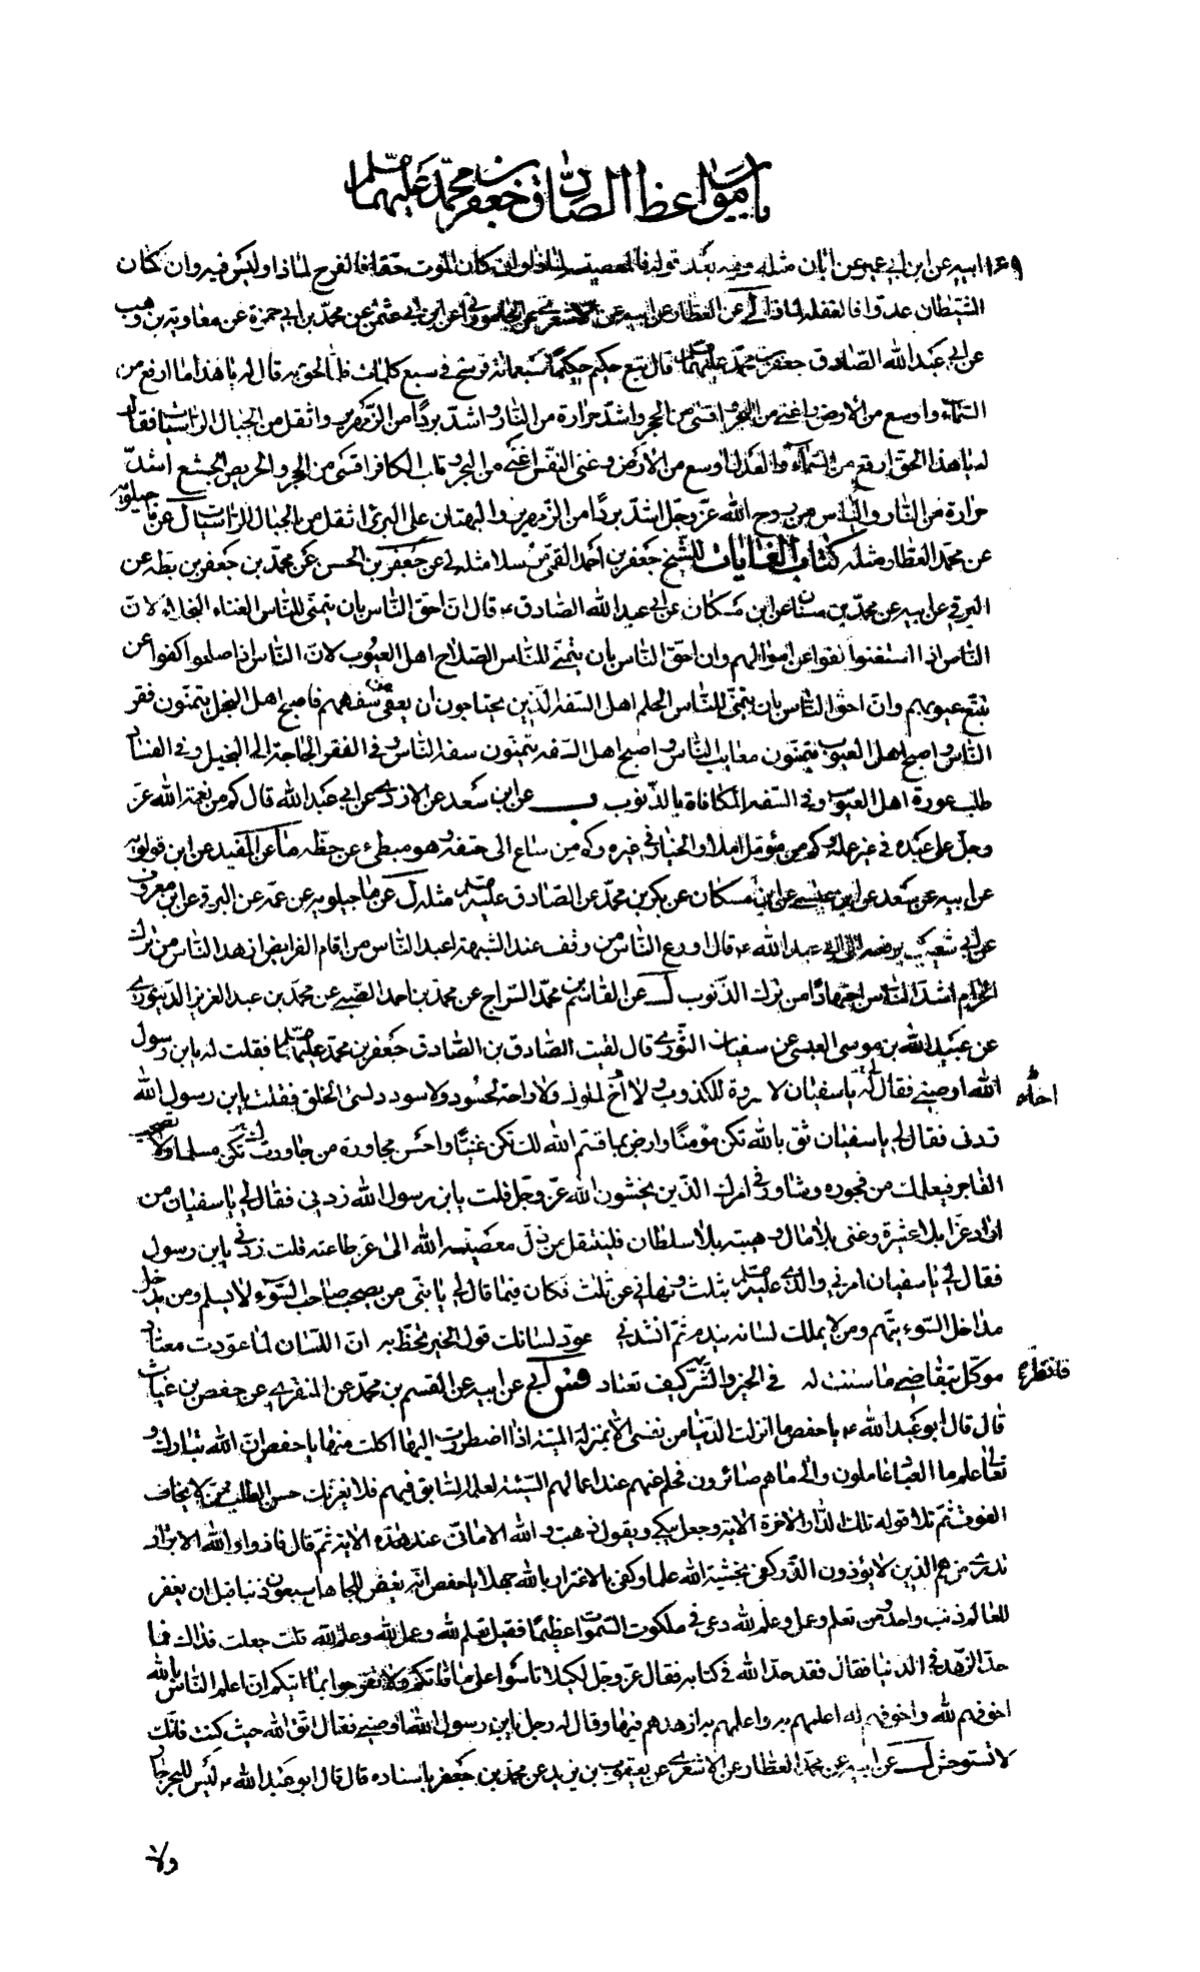 باب مواعظ الصادق جعفر بن محمد عليهما السلم
١٦٩ ابيه عن ابن ابي عمير عن ابان مثله وفيه بعد قوله فالمعصية لماذا وان كان الموت حقا فالفرح لماذا وليس فيه وان كان
الشيطان عدوا فالغفلة لماذا لي عن العطار عن ابيه عن الاشعري عن الجاموراني عن ابن ابي عثمن عن محمد بن ابي حمزة عن معاوية بن وهب
عن ابي عبد الله الصادق جعفر بن محمد عليهما السلم قال تبع حكيم حكيما سبعمائة فرسخ في سبع كلمات فلما لحق به قال له يا هذا ما ارفع من
السماء واوسع من الارض واغنى من البحر واقسى من الحجر واشد حرارة من النار واشد بردا من الزمهرير واثقل من الجبال الراسيات فقال
له يا هذا الحق ارفع من السماء والعدل اوسع من الارض وغنى النفس اغنى من البحر وقلب الكافر اقسى من الحجر والحريص الجشع اشد
حرارة من النار والياس من روح الله عز وجل اشد بردا من الزمهرير والبهتان على البري اثقل من الجبال الراسيات ل عن ماجيلويه
عن محمد العطار مثله كتاب الغايات للشيخ جعفر بن احمد القمي مرسلا مثله لي عن جعفر بن الحسن عن محمد بن جعفر بن بطه عن
البرقي عن ابيه عن محمد بن سنان عن ابن مسكان عن ابي عبد الله الصادق ع قال ان احق الناس بان يتمنى للناس الغناء البخلاء لان
الناس اذا استغنوا كفوا عن اموالهم وان احق الناس بان يتمنى للناس الصلاح اهل العيوب لان الناس اذا صلحوا كفوا عن
تتبع عيوبهم وان احق الناس بان يتمنى للناس الحلم اهل السفه الذين يحتاجون ان يعفى عن سفههم فاصبح اهل البخل يتمنون فقر
الناس واصبح اهل العيوب يتمنون معايب الناس واصبح اهل السفه يتمنون سفه الناس وفي الفقر الحاجة الى البخيل وفي الفساد
طلب عورة اهل العيوب وفي السفه المكافاة بالذنوب ب عن ابن سعد عن الازدي عن ابي عبد الله قال كم من نعمة الله عز
وجل على عبده في غير عمله وكم من مؤمل املا والخيار في غيره وكم من ساع الى حتفه وهو مبطئ عن حظه ما عن المفيد عن ابن قولويه
عن ابيه عن سعد عن ابن عيسى عن ابن مسكان عن بكر بن محمد عن الصادق عليه السلم مثله ل عن ماجيلويه عن عمه عن البرقي عن ابن معروف
عن ابي شعيب يرفعه الى ابي عبد الله ع قال اورع الناس من وقف عند الشبهة اعبد الناس من اقام الفرايض ازهد الناس من ترك
الحرام اشد الناس اجتهادا من ترك الذنوب ل عن القاسم بن محمد السراج عن محمد بن احمد الضبي عن محمد بن عبد العزيز الدينوري
عن عبيد الله بن موسى العبسي عن سفيان الثوري قال لقيت الصادق بن الصادق جعفر بن محمد عليهما السلم فقلت له يابن رسول
الله اوصني فقال لي يا سفيان لا مروة للكذوب ولا اخ لملوك ولا راحة لحسود ولا سودد لسئ الخلق فقلت يابن رسول الله
زدني فقال لي يا سفيان ثق بالله تكن مؤمنا وارض بما قسم الله لك تكن غنيا واحسن مجاورة من جاورت تكن مسلما ولا تصحب
الفاجر فيعلمك من فجوره وشاور في امرك الذين يخشون الله عز وجل قلت يابن رسول الله زدني فقال لي يا سفيان من
اراد عزا بلا عشيرة وغنى بلا مال وهيبة بلا سلطان فلينتقل من ذل معصية الله الى عز طاعته قلت زدني يابن رسول
فقال لي يا سفيان امرني والدي عليه السلم بثلث ونهاني عن ثلث فكان فيما قال لي يا بني من يصحب صاحب السوء لا يسلم ومن يدخل
مداخل السوء يتهم ومن لا يملك لسانه يندم ثم انشدني عود لسانك قول الخير تحظ به ان اللسان لما عودت معتاد
موكل بتقاضي ما سننت له في الخير والشر كيف تعتاد فس ابي عن ابيه عن القسم بن محمد عن المنقري عن حفص بن غياث
فانظر خ
قال قال ابو عبد الله ع يا حفص ما انزلت الدنيا من نفسي الا بمنزلة الميتة اذا اضطررت اليها اكلت منها يا حفص ان الله تبارك و
تعالى علم ما العباد عاملون والى ما هم صائرون فحلم عنهم عند اعمالهم السيئة لعلمه السابق فيهم فلا يغرنك حسن الطلب ممن لا يخاف
الفوت ثم تلا قوله تلك الدار الاخرة الاية وجعل يبكي ويقول ذهبت والله الاماني عند هذه الاية ثم قال فاز والله الابرار
تدري من هم الذين لا يؤذون الذر كفى بخشية الله علما وكفى بالاغترار بالله جهلا يا حفص انه يغفر للجاهل سبعون ذنبا قبل ان يغفر
للعالم ذنب واحد ومن تعلم وعمل وعلم لله دعي في ملكوت السموات عظيما فقيل تعلم لله وعمل لله وعلم لله قلت جعلت فداك فما
حد الزهد في الدنيا فقال فقد حد الله في كتابه فقال عز وجل لكيلا تاسوا على ما فاتكم ولا تفرحوا بما اتيكم ان اعلم الناس بالله
اخوفهم لله واخوفهم له اعلمهم به واعلمهم به ازهدهم فيها وقال له رجل يابن رسول الله اوصني فقال اتق الله حيث كنت فانك
لا تستوحش ل عن ابيه عن محمد العطار عن الاشعري عن يعقوب بن يزيد عن محمد بن جعفر باسناده قال قال ابو عبد الله ع ليس للبحر جار
ولا